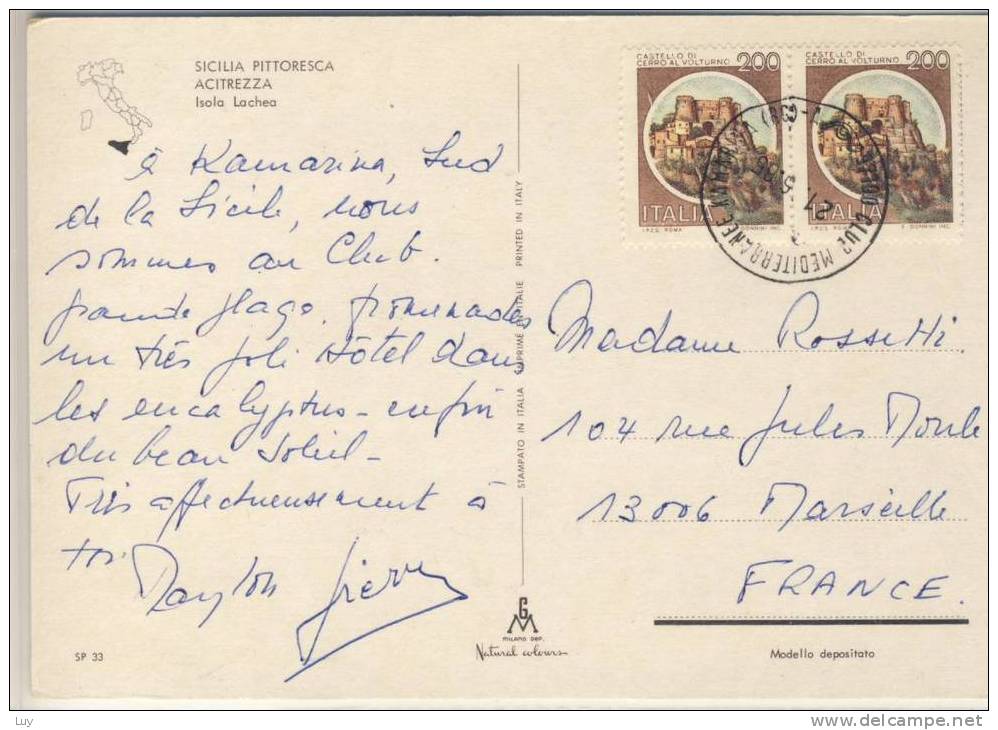 SICILIA PITTORESCA
ACITREZZA
Isola Lachea
à Kamarina, Sud
de la Sicile, nous
sommes au Club.
grande plage, promenades
un très joli Hôtel dans
les eucalyptus - enfin
du beau soleil -
Très affectueusement à
toi.
SP 33
STAMPATO IN ITALIA IMPRIMÉ EN ITALIE PRINTED IN ITALY
GM
MILANO DEP.
Natural colours
CASTELLO DI
CERRO AL VOLTURNO
200
ITALIA
I.P.Z.S. ROMA
E. DONNINI INC.
CASTELLO DI
CERRO AL VOLTURNO
200
ITALIA
I.P.Z.S. ROMA
E. DONNINI INC.
CLUB MEDITERRANEE KAMARINA
27
Madame Rossetti.
104 rue Jules
13006 Marseille
FRANCE.
Modello depositato
Luy
www.delcampe.net